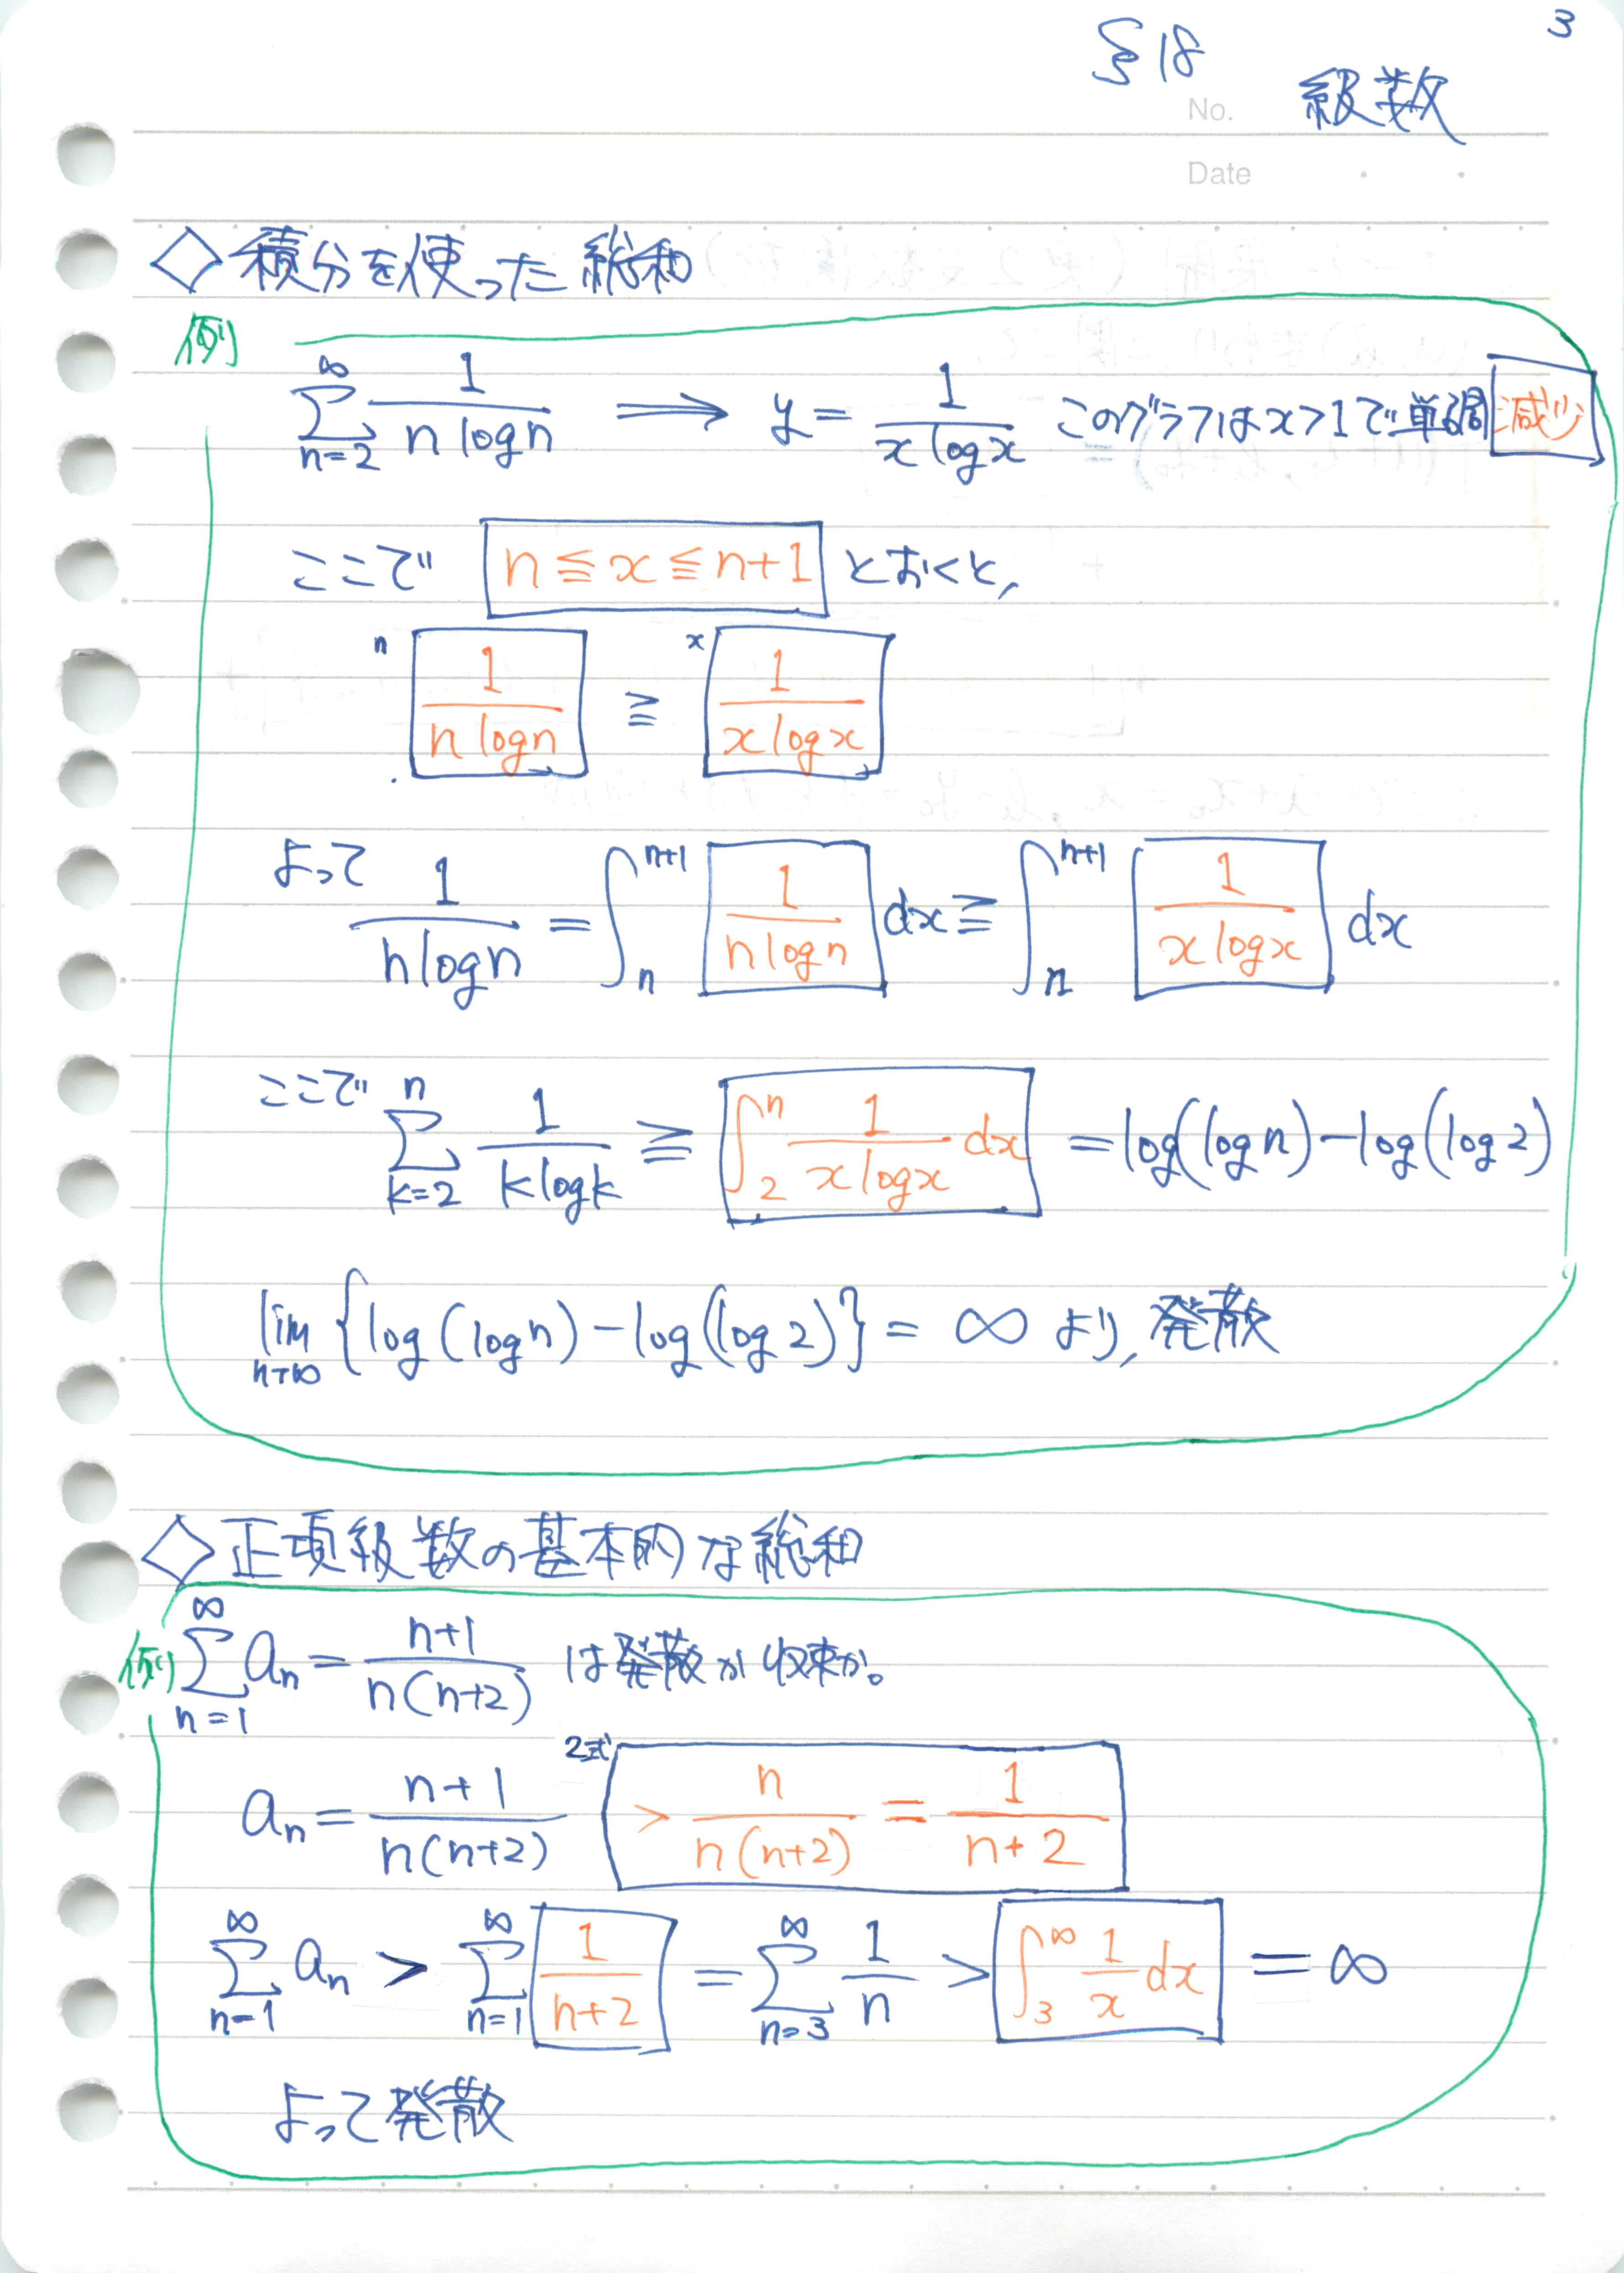 3
§18
No. 級数
Date
◇積分を使った総和
例
∑_{n=2}^{∞} 1/(n log n) ⟹ y = 1/(x log x) このグラフはx>1で単調 減少
ここで n≦x≦n+1 とおくと,
n 1/(n log n) ≧ x 1/(x log x)
よって 1/(n log n) = ∫_{n}^{n+1} 1/(n log n) dx ≧ ∫_{n}^{n+1} 1/(x log x) dx
ここで ∑_{k=2}^{n} 1/(k log k) ≧ ∫_{2}^{n} 1/(x log x) dx = log(log n) − log(log 2)
lim_{n→∞} {log(log n) − log(log 2)} = ∞ より, 発散
◇正項級数の基本的な総和
例) ∑_{n=1}^{∞} a_n = (n+1)/(n(n+2)) は発散か収束か。
2式
a_n = (n+1)/(n(n+2)) > n/(n(n+2)) = 1/(n+2)
∑_{n=1}^{∞} a_n > ∑_{n=1}^{∞} 1/(n+2) = ∑_{n=3}^{∞} 1/n > ∫_{3}^{∞} 1/x dx = ∞
よって発散